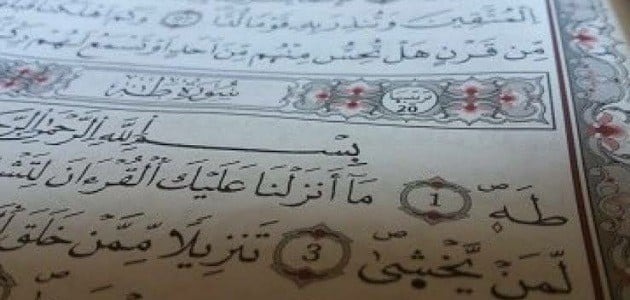 الْمُتَّقِينَ وَتُنذِرَ بِهِ قَوْمًا لُّدًّا وَكَمْ أَهْلَكْنَا
مِّن قَرْنٍ هَلْ تُحِسُّ مِنْهُم مِّنْ أَحَدٍ أَوْ تَسْمَعُ لَهُمْ
ترتيبها 20 سُورَةُ طه
بِسْمِ اللَّهِ الرَّحْمَٰنِ الرَّ
طه 1 مَا أَنزَلْنَا عَلَيْكَ الْقُرْءَانَ لِتَشْ
لِّمَن يَخْشَىٰ 3 تَنزِيلًا مِّمَّنْ خَلَقَ الْ